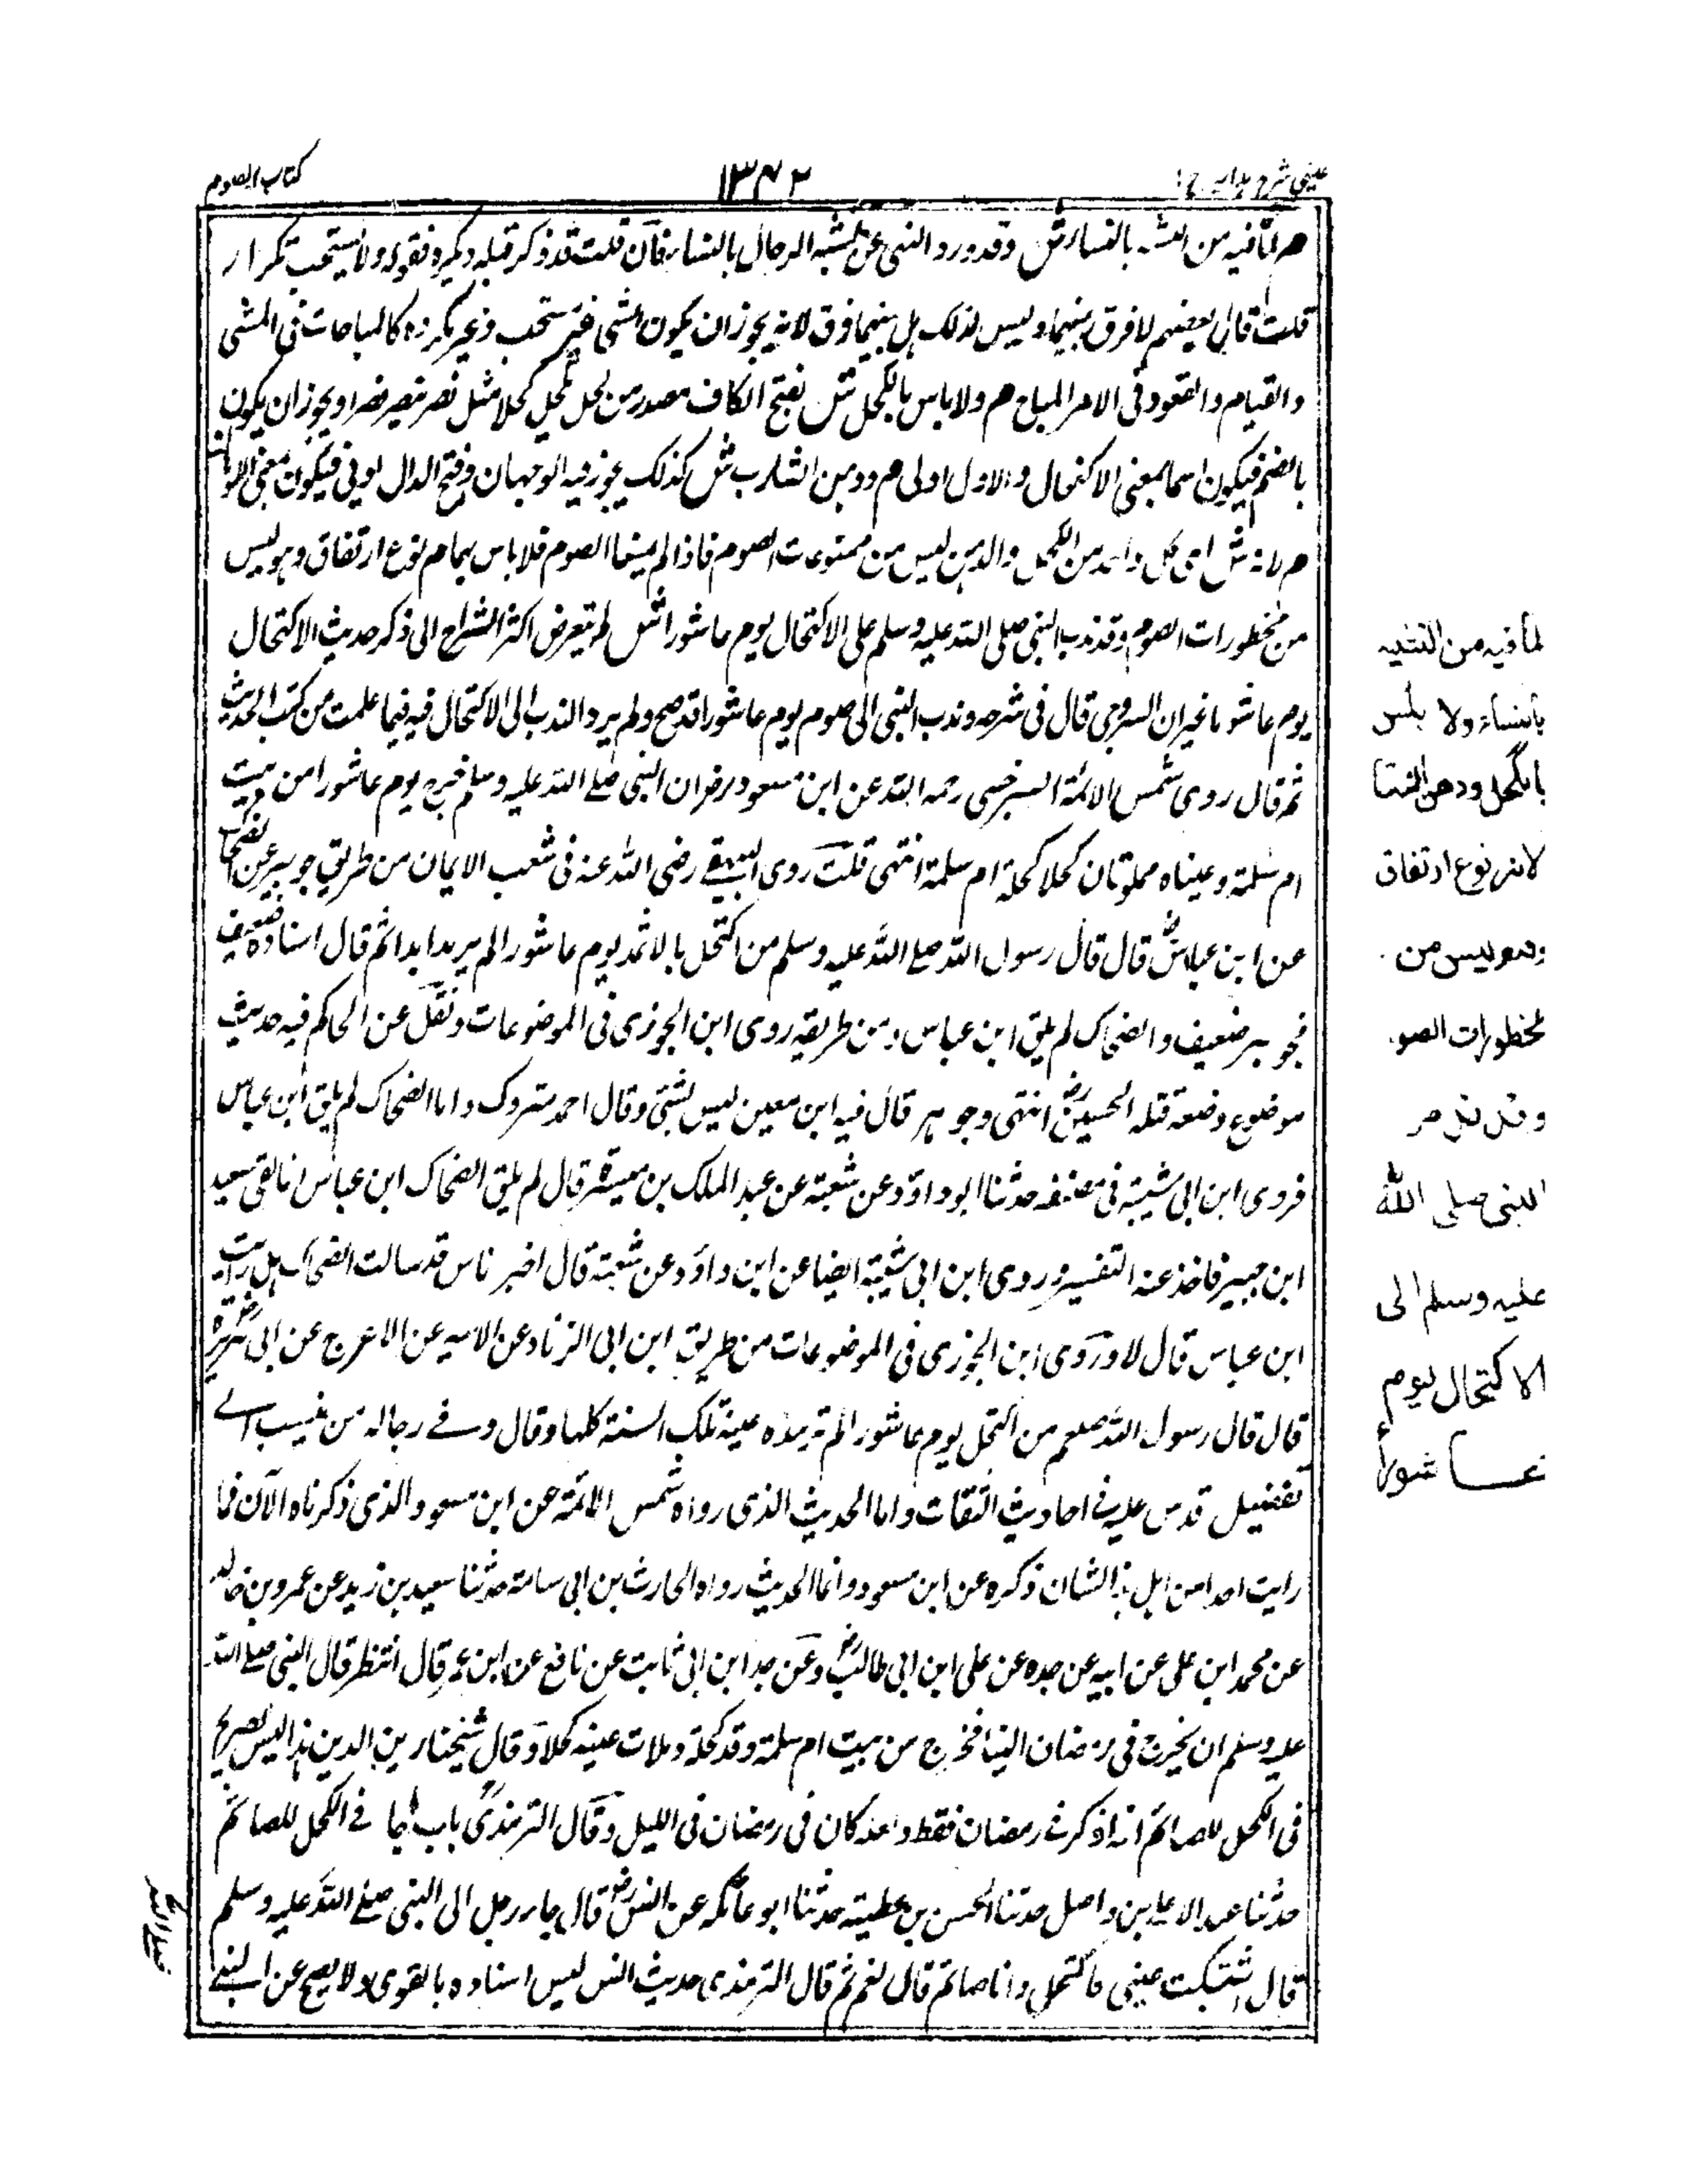 عینی شرح ہدایہ ج ۱
۱۳۴۲
کتاب الصوم
م لما فیه من التشبه بالنساء ش وقد ورد النہی عن تشبه الرجال بالنساء فان قلت قد ذکر قبله ویکره فقوله ولا یستحب تکرار
قلت قال بعضہم لا فرق بینہما ولیس کذلک بل بینہما فرق لانه یجوز ان یکون الشئی غیر مستحب وغیر مکروه کالمباحات فی المشی
والقیام والقعود فی الامر المباح م ولا باس بالکحل ش بفتح الکاف مصدر من کحل یکحل کحلا مثل نصر ینصر نصرا ویجوز ان یکون
بالضم فیکون اسما بمعنی الاکتحال والاول اولی م ودہن الشارب ش کذلک یجوز فیه الوجہان وفتح الدال اولی فیکون بمعنی الادہان
م لانه ش ای کل واحد من الکحل والدہن لیس من ممنوعات الصوم فاذا لم یمنعہا الصوم فلا باس بہما م نوع ارتفاق وہو لیس
من محظورات الصوم وقد ندب النبی صلی اللہ علیه وسلم علی الاکتحال یوم عاشورا ش لم یتعرض اکثر الشراح الی ذکر حدیث الاکتحال
یوم عاشورا غیر ان السروجی قال فی شرحه وندب النبی الی صوم یوم عاشورا قد صح ولم یرد الندب الی الاکتحال فیه فیما علمت من کتب الحدیث
ثم قال روی شمس الائمة السرخسی رحمه اللہ عن ابن مسعود رض ان النبی صلے اللہ علیه وسلم خرج یوم عاشورا من بیت
ام سلمة وعیناه مملوتان کحلا کحلته ام سلمة انتہی قلت روی البیہقے رضی اللہ عنه فی شعب الایمان من طریق جویبر عن الضحاک
عن ابن عباس رض قال قال رسول اللہ صلے اللہ علیه وسلم من اکتحل بالاثمد یوم عاشورا لم یرمد ابدا ثم قال اسناده ضعیف
فجویبر ضعیف والضحاک لم یلق ابن عباس ومن طریقه روی ابن الجوزی فی الموضوعات ونقل عن الحاکم فیه حدیث
موضوع وضعه قتلة الحسین رض انتہی وجوہر قال فیه ابن معین لیس بشئی وقال احمد متروک واما الضحاک لم یلق ابن عباس
فروی ابن ابی شیبة فی مصنفه حدثنا ابو داود عن شعبة عن عبد الملک بن میسرة قال لم یلق الضحاک ابن عباس انما لقی سعید
ابن جبیر فاخذ عنه التفسیر وروی ابن ابی شیبة ایضا عن ابن داؤد عن شعبة قال اخبر ناس قد سالت الضحاک ہل رایت
ابن عباس قال لا وروی ابن الجوزی فی الموضوعات من طریق ابن ابی الزناد عن الابیه عن الاعرج عن ابی ہریرة رض
قال قال رسول اللہ صلعم من اکتحل یوم عاشورا لم ترمده عینه تلک السنة کلہا وقال وفے رجاله من ینسب الے
تفضیل قدس علیه فے احادیث الثقات واما الحدیث الذی رواه شمس الائمة عن ابن مسعود الذی ذکرناه الآن فما
رایت احدا من اہل ہذا الشان ذکره عن ابن مسعود وانما الحدیث رواه الحارث بن ابی سامة حدثنا سعید بن زید عن عمرو بن خالد
عن محمد ابن علی عن ابیه عن جده عن علی ابن ابی طالب رض وعن جد ابن ابی ثابت عن نافع عن ابن عمر قال انتظر قال النبی صلے اللہ
علیه وسلم ان یخرج فی رمضان الینا فخرج من بیت ام سلمة وقد کحلته وملات عینه کحلا وقال شیخنا زین الدین ہذا لیس بصریح
فی الکحل للصائم انه اذ ذکر فے رمضان فقط ولعله کان فی رمضان فی اللیل وقال الترمذی باب ما جا فے الکحل للصائم
حدثنا عبد الاعلے بن واصل حدثنا الحسن بن عطیة حدثنا ابو عاتکه عن انس رض قال جاء رجل الی النبی صلے اللہ علیه وسلم
قال اشتکت عینی فاکتحل وانا صائم قال نعم ثم قال الترمذی حدیث انس لیس اسناده بالقوی ولا یصح عن النبے
لما فیه من التشبه
بالنساء ولا باس
بالکحل ودهن الشا
لانه نوع ارتفاق
وهو لیس من
محظورات الصو
وقد ندب
النبی صلی الله
علیه وسلم الی
الاکتحال یوم
عاشوراء